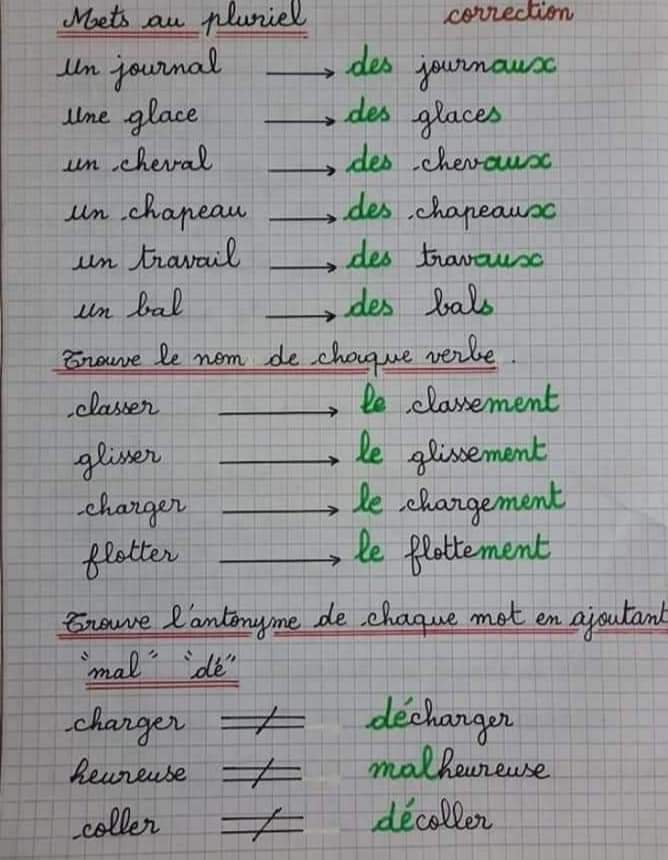 Mets au pluriel correction
un journal → des journaux
une glace → des glaces
un cheval → des chevaux
un chapeau → des chapeaux
un travail → des travaux
un bal → des bals
Trouve le nom de chaque verbe.
classer → le classement
glisser → le glissement
charger → le chargement
flotter → le flottement
Trouve l'antonyme de chaque mot en ajoutant
"mal" "dé"
charger ≠ décharger
heureuse ≠ malheureuse
coller ≠ décoller